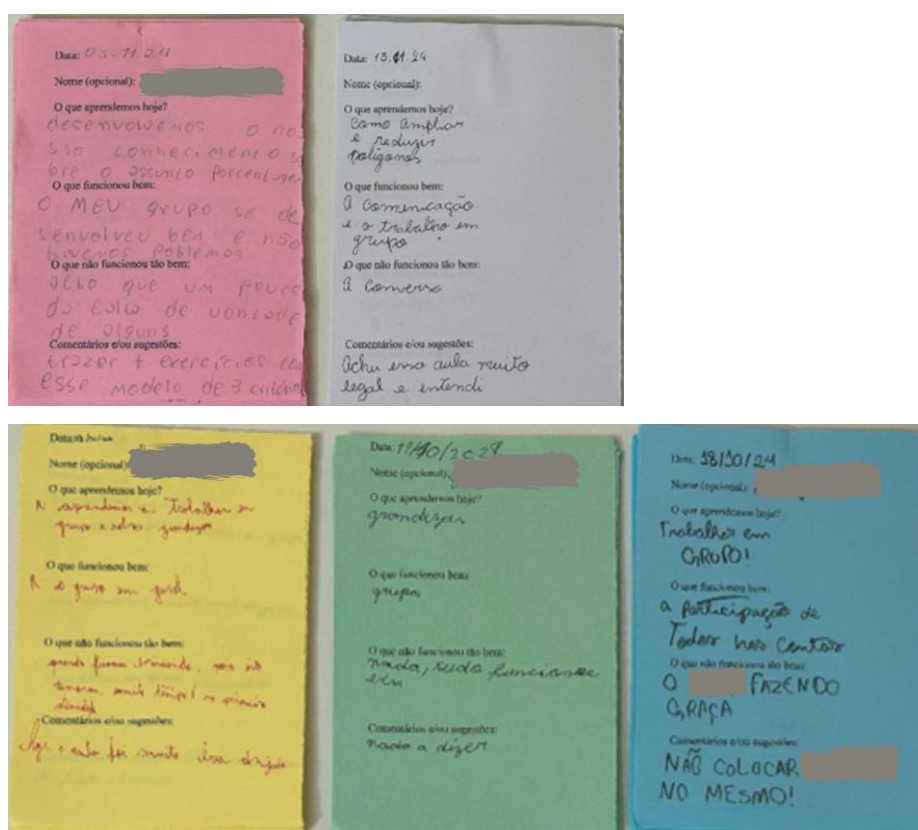 Data: 05.11.24
Nome (opcional):
O que aprendemos hoje?
desenvolvemos o no
sso conhecimento so
bre o assunto porcentagem
O que funcionou bem:
O MEU grupo se de
senvolveu bem e não
tivemos poblemas
O que não funcionou tão bem:
acho que um pouco
da falta de vontade
de alguns
Comentários e/ou sugestões:
trazer + exercícios com
esse modelo de 3
Data: 13.11.24
Nome (opcional):
O que aprendemos hoje?
Como ampliar
e reduzir
poligonos
O que funcionou bem:
A comunicação
e o trabalho em
grupo
O que não funcionou tão bem:
A conversa
Comentários e/ou sugestões:
Achei essa aula muito
legal e entendi
Data:
Nome (opcional)
O que aprendemos hoje?
R: aprendemos a Trabalhar em
grupo e sobre grandezas
O que funcionou bem:
R: o grupo em geral
O que não funcionou tão bem:
quando ficaram brincando, pois isto
muito tempo
Comentários e/ou sugestões:
a aula foi muito obrigado
Data: /10/2024
Nome (opcional):
O que aprendemos hoje?
grandezas
O que funcionou bem:
grupo
O que não funcionou tão bem:
Nada, tudo funcionou
bem
Comentários e/ou sugestões:
nada a dizer
Data: 18/10/24
Nome (opcional):
O que aprendemos hoje?
Trabalhar em
GRUPO!
O que funcionou bem:
a participação de
Todos nas contas
O que não funcionou tão bem:
O FAZENDO
GRAÇA
Comentários e/ou sugestões:
NÃO COLOCAR
NO MESMO!